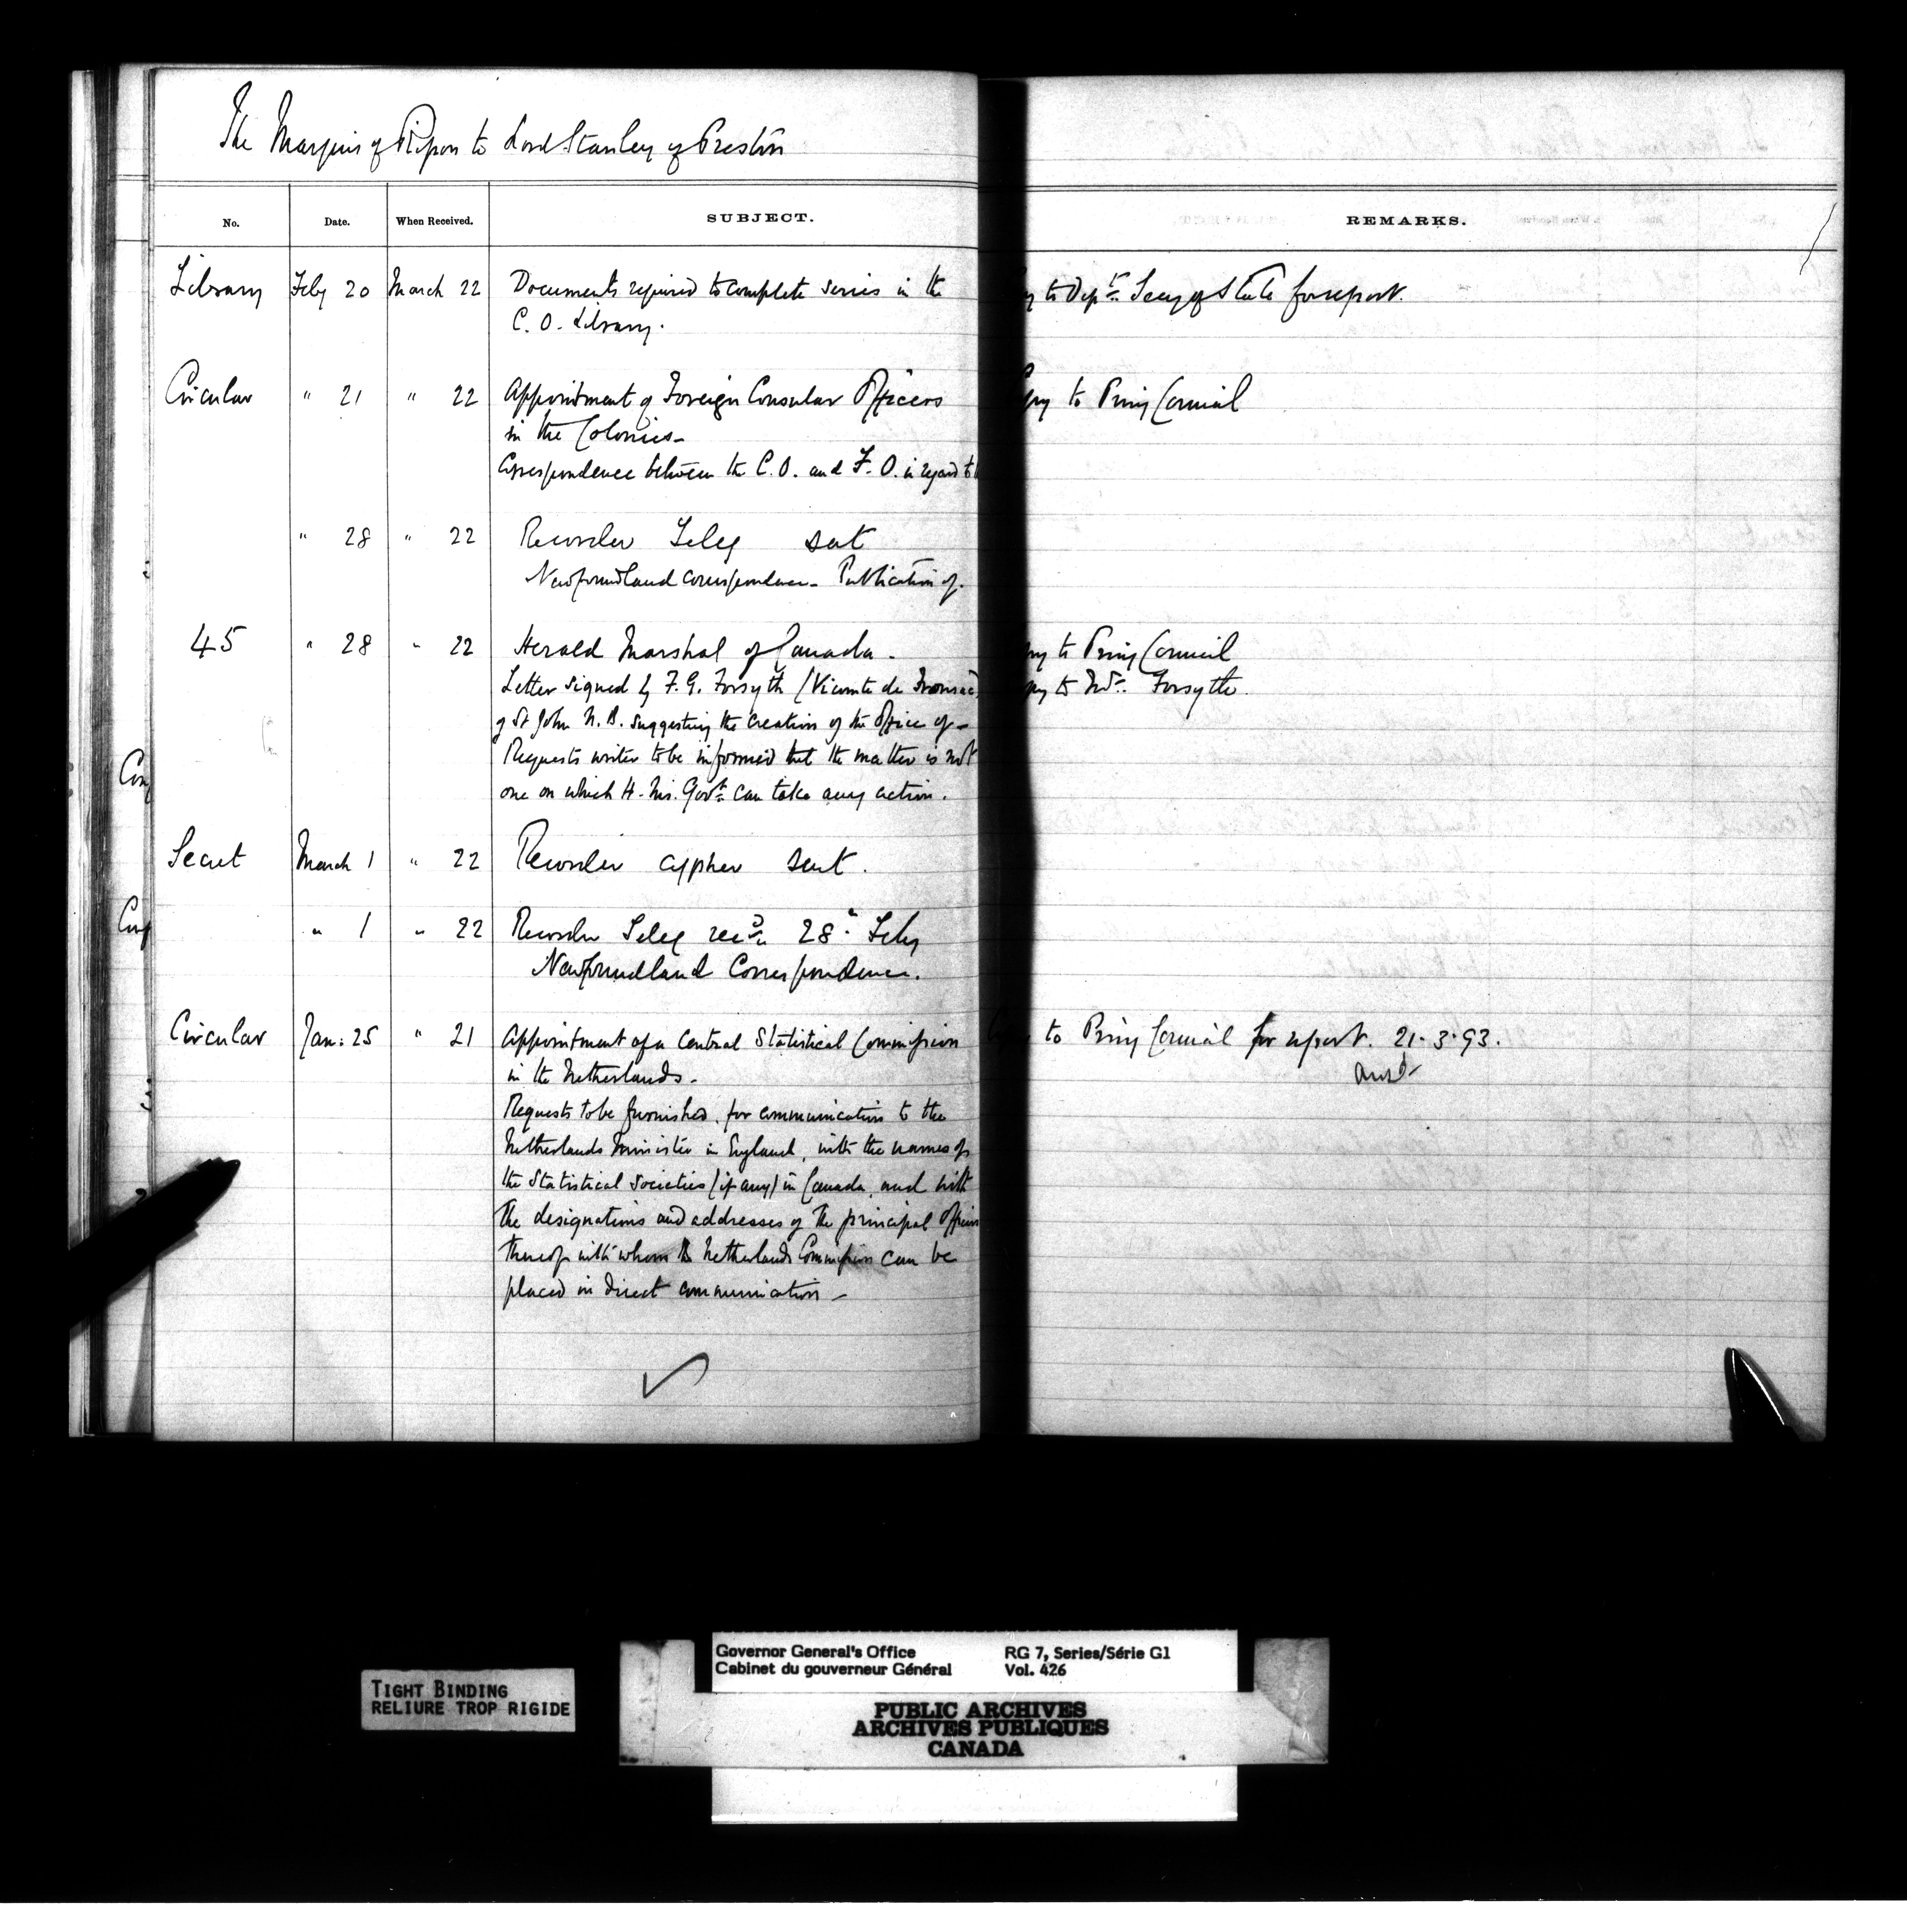 The Marquis of Ripon to Lord Stanley of Preston
No. Date. When Received. SUBJECT. REMARKS.
Library Feby 20 March 22 Documents required to complete series in the to Dept. Secy of State for report.
C. O. Library.
Circular " 21 " 22 Appointment of Foreign Consular Officers Copy to Privy Council
in the Colonies-
Correspondence between the C. O. and F. O. in regard to
" 28 " 22 Recorder Teleg sent
Newfoundland correspondence- Publication of.
45 " 28 " 22 Herald Marshal of Canada. Copy to Privy Council
Letter signed by F. G. Forsyth (Vicomte de Fronsac) Copy to Mr. Forsythe.
of St John N. B. suggesting the creation of the office of-
Requests writer to be informed that the matter is not
one on which H. M's. Govt. can take any action.
Secret March 1 " 22 Recorder cypher sent.
" 1 " 22 Recorder Teleg recd. 28th Feby
Newfoundland Correspondence.
Circular Jan: 25 " 21 Appointment of a Central Statistical Commission to Privy Council for report. 21.3.93.
in the Netherlands- Ansd
Requests to be furnished, for communication to the
Netherlands Minister in England, with the names of
the Statistical Societies (if any) in Canada, and with
the designations and addresses of the principal officers
thereof with whom the Netherlands Commission can be
placed in direct communication-
TIGHT BINDING
RELIURE TROP RIGIDE
Governor General's Office RG 7, Series/Série G1
Cabinet du gouverneur Général Vol. 426
PUBLIC ARCHIVES
ARCHIVES PUBLIQUES
CANADA